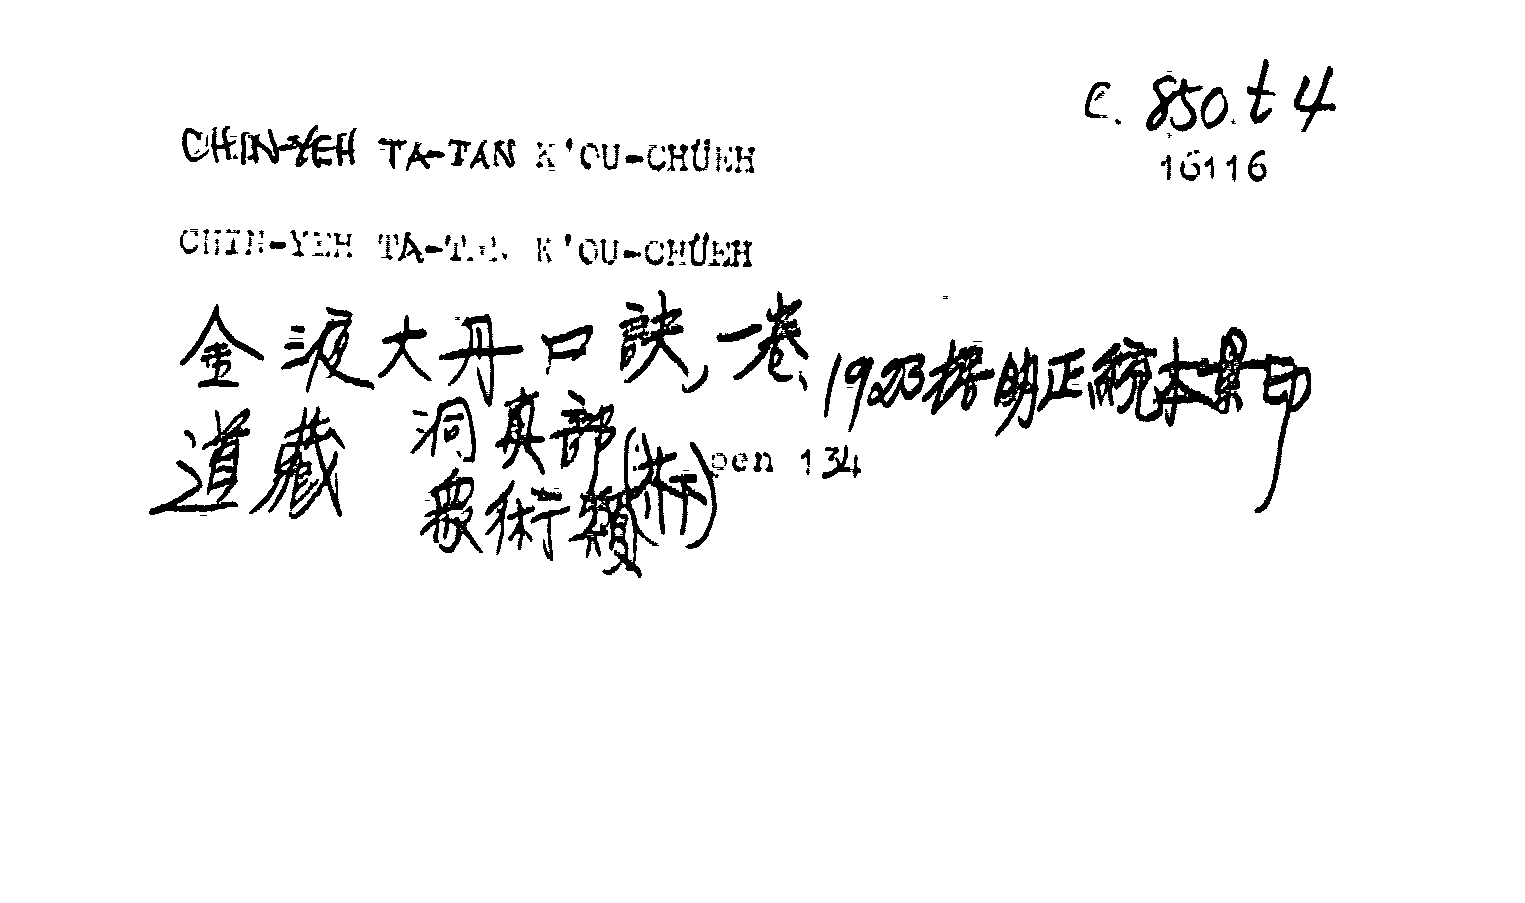 C. 850. t 4
16116
CHIN-YEH TA-TAN K'OU-CHÜEH
CHIN-YEH TA-TAN K'OU-CHÜEH
金液大丹口訣,一卷、1923據明正統本景印
道藏 洞真部
眾術類(芥下) pen 134